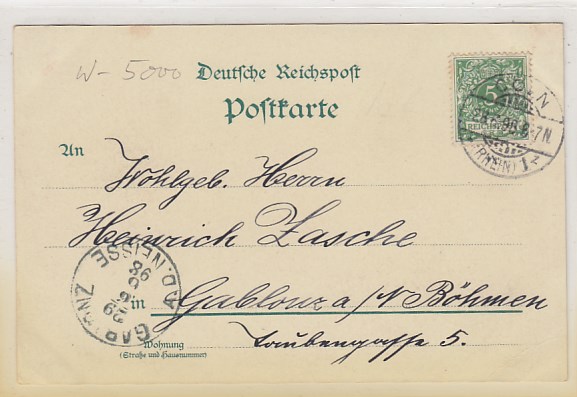 W - 5000
Deutsche Reichspost
Postkarte
An
Wohlgeb. Herrn
Heinrich Zasche
in Gablonz a/N Böhmen
Wohnung
(Straße und Hausnummer)
Taubengasse 5.
5
REICHSPOST
CÖLN
(RHEIN) 1
A.D. NEISSE
98
GABLONZ